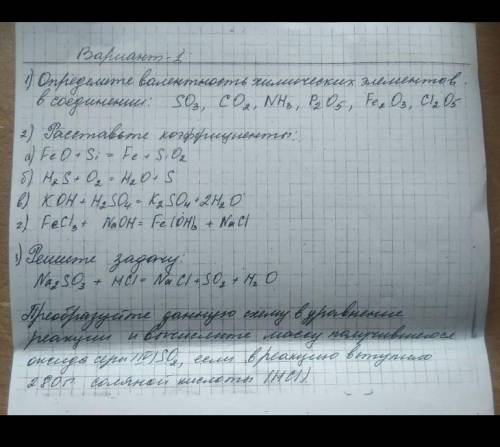 Вариант-1.
1) Определите валентность химических элементов
в соединении: SO3, CO2, NH3, P2O5, Fe2O3, Cl2O5
2) Расставьте коэффициенты:
а) FeO + Si = Fe + SiO2
б) H2S + O2 = H2O + S
в) KOH + H2SO4 = K2SO4 + 2H2O
г) FeCl3 + NaOH = Fe(OH)3 + NaCl
3) Решите задачу:
Na2SO3 + HCl = NaCl + SO2 + H2O
Преобразуйте данную схему в уравнение
реакции и вычислите массу получившегося
оксида серы (IV) SO2, если в реакцию вступило
280г соляной кислоты (HCl)